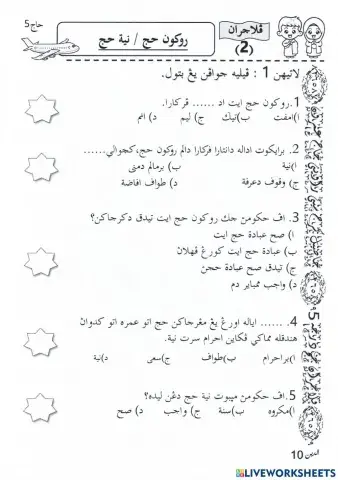 حاج 5
ڤلاجران
(2)
روكون حج / نية حج
لاتيهن 1 : ڤيليه جواڤن يڠ بتول.
1. روكون حج ايت اد ...... ڤركارا.
ا) امڤت ب) تيݢ ج) ليم د) انم
2. برايكوت اداله دانتارا ڤركارا دالم روكون حج، كچوالي......
ا) نية ب) برمالم دمنى
ج) وقوف دعرفة د) طواف افاضة
3. اڤ حكومن جك روكون حج ايت تيدق دكرجاكن؟
ا) صح عبادة حج ايت
ب) عبادة حج ايت كورڠ ڤهلان
ج) تيدق صح عبادة حجن
د) واجب ممباير دم
4. ...... اياله اورڠ يڠ مڠرجاكن حج اتو عمره اتو كدوان
هندقله مماكي ڤكاين احرام سرت نية.
ا) براحرام ب) طواف ج) سعي د) نية
5. اڤ حكومن ميبوت نية حج دڠن ليده؟
ا) مكروه ب) سنة ج) واجب د) صح
10
LIVEWORKSHEETS